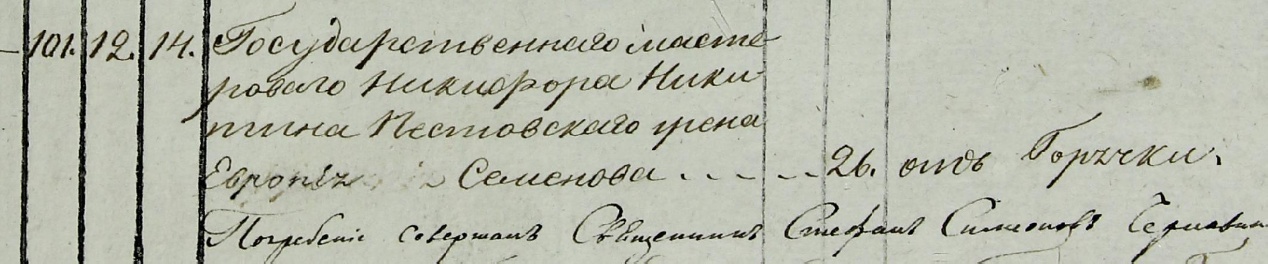 101. 12. 14. Государственнаго масте
роваго Никифора Ники
тина Пестовскаго жена
Семенова . . - - - 26. отъ Горячки.
Погребеніе совершалъ Священникъ Стефанъ Симеоновъ